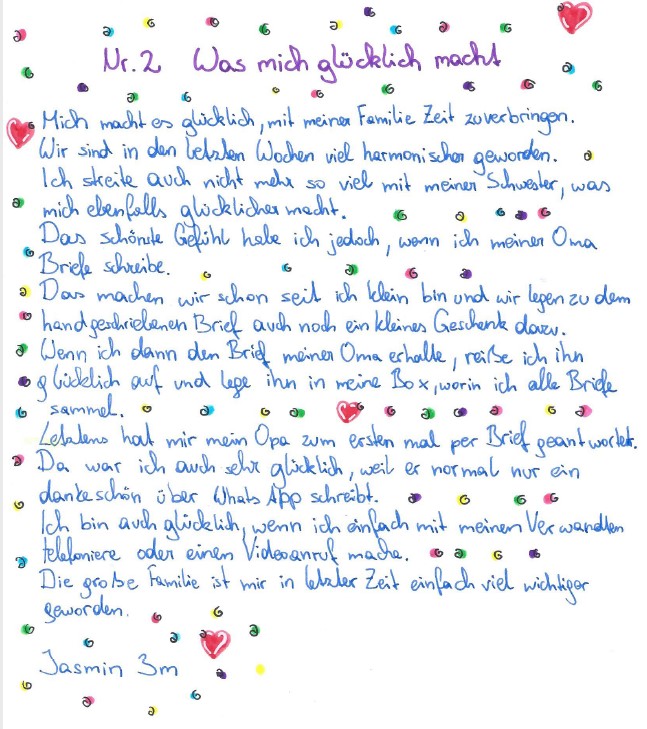 Nr. 2 Was mich glücklich macht
Mich macht es glücklich, mit meiner Familie Zeit zuverbringen.
Wir sind in den letzten Wochen viel harmonischer geworden.
Ich streite auch nicht mehr so viel mit meiner Schwester, was
mich ebenfalls glücklicher macht.
Das schönste Gefühl habe ich jedoch, wenn ich meiner Oma
Briefe schreibe.
Das machen wir schon seit ich klein bin und wir legen zu dem
handgeschriebenen Brief auch noch ein kleines Geschenk dazu.
Wenn ich dann den Brief meiner Oma erhalte, reiße ich ihn
glücklich auf und lege ihn in meine Box, worin ich alle Briefe
sammel.
Letztens hat mir mein Opa zum ersten mal per Brief geantwortet.
Da war ich auch sehr glücklich, weil er normal nur ein
dankeschön über Whats App schreibt.
Ich bin auch glücklich, wenn ich einfach mit meinen Verwandten
telefoniere oder einen Videoanruf mache.
Die große Familie ist mir in letzter Zeit einfach viel wichtiger
geworden.
Jasmin 3m